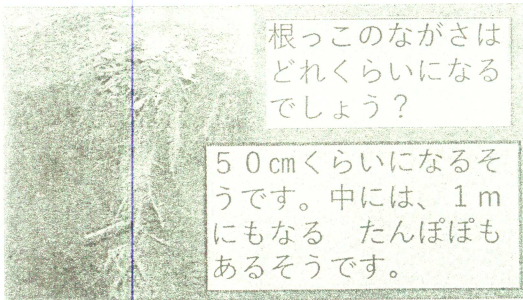 根っこのながさは
どれくらいになる
でしょう？
５０㎝くらいになるそ
うです。中には、１ｍ
にもなる　たんぽぽも
あるそうです。